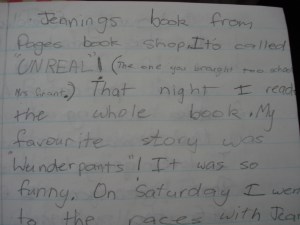 Jennings book from
Pages book shop. It's called
"UNREAL"! (The one you brought two
Mr Grant.) That night I read
the whole book. My
favourite story was
"Wunderpants"! It was so
funny. On Saturday I wen
to the races with Jean